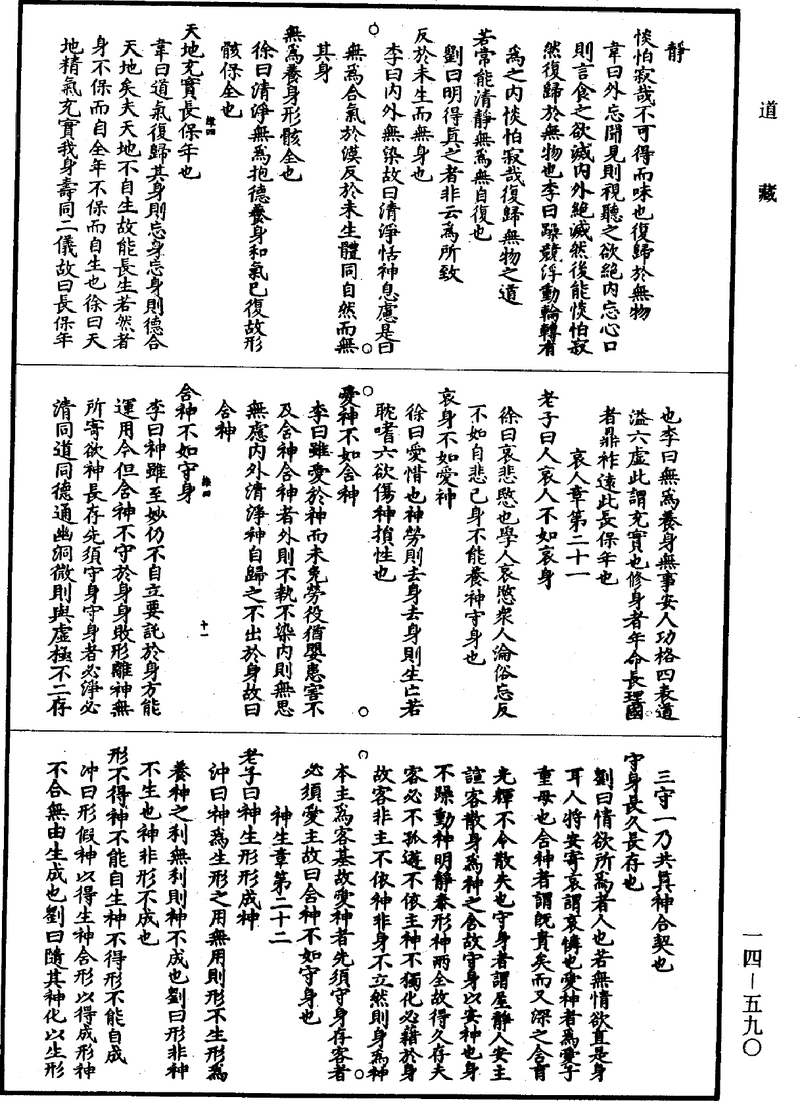 道藏
靜
惔怕寂哉不可得而味也復歸於無物
韋曰外忘聞見則視聽之欲絕內忘心口
則言食之欲滅內外絕滅然後能惔怕寂
然復歸於無物也李曰躁競浮動輪轉有
為之內惔怕寂哉復歸無物之道
若常能清靜無為無自復也
劉曰明得真之者非云為所致
反於未生而無身也
李曰內外無染故曰清淨恬神息慮是曰
無為合氣於漠反於未生體同自然而無
其身
無為養身形骸全也
徐曰清淨無為抱德養身和氣已復故形
骸保全也
天地充實長保年也
韋曰道氣復歸其身則忘身忘身則德合
天地矣夫天地不自生故能長生若然者
身不保而自全年不保而自生也徐曰天
地精氣充實我身壽同二儀故曰長保年
也李曰無為養身無事安人功格四表道
溢六虛此謂充實也修身者年命長理國
者鼎祚遠此長保年也
哀人章第二十一
老子曰人哀人不如哀身
徐曰哀悲愍也學人哀愍衆人淪俗忘反
不如自悲己身不能養神守身也
哀身不如愛神
徐曰愛惜也神勞則去身去身則生亡若
耽嗜六欲傷神損性也
愛神不如舍神
李曰雖愛於神而未免勞役猶嬰患害不
及舍神舍神者外則不執不染內則無思
無慮內外清淨神自歸之不出於身故曰
舍神
舍神不如守身
十一
李曰神雖至妙仍不自立要託於身方能
運用今但舍神不守於身身敗形離神無
所寄欲神長存先須守身守身者必淨必
清同道同德通幽洞微則與虛極不二存
三守一乃共真神合契也
守身長久長存也
劉曰情欲所為者人也若無情欲直是身
耳人將安寄哀謂哀憐也愛神者為愛子
重母也舍神者謂既貴矣而又深之含育
光輝不令散失也守身者謂屋靜人安主
諠客散身為神之舍故守身以安神也身
不躁動神明靜泰形神兩全故得久存夫
客必不孤遊不依主神不獨化必藉於身
故客非主不依神非身不立然則身為神
本主為客基故愛神者先須守身存客者
必須愛主故曰舍神不如守身也
神生章第二十二
老子曰神生形形成神
沖曰神為生形之用無用則形不生形為
養神之利無利則神不成也劉曰形非神
不生也神非形不成也
形不得神不能自生神不得形不能自成
沖曰形假神以得生神合形以得成形神
不合無由生成也劉曰隨其神化以生形
一四—五九〇